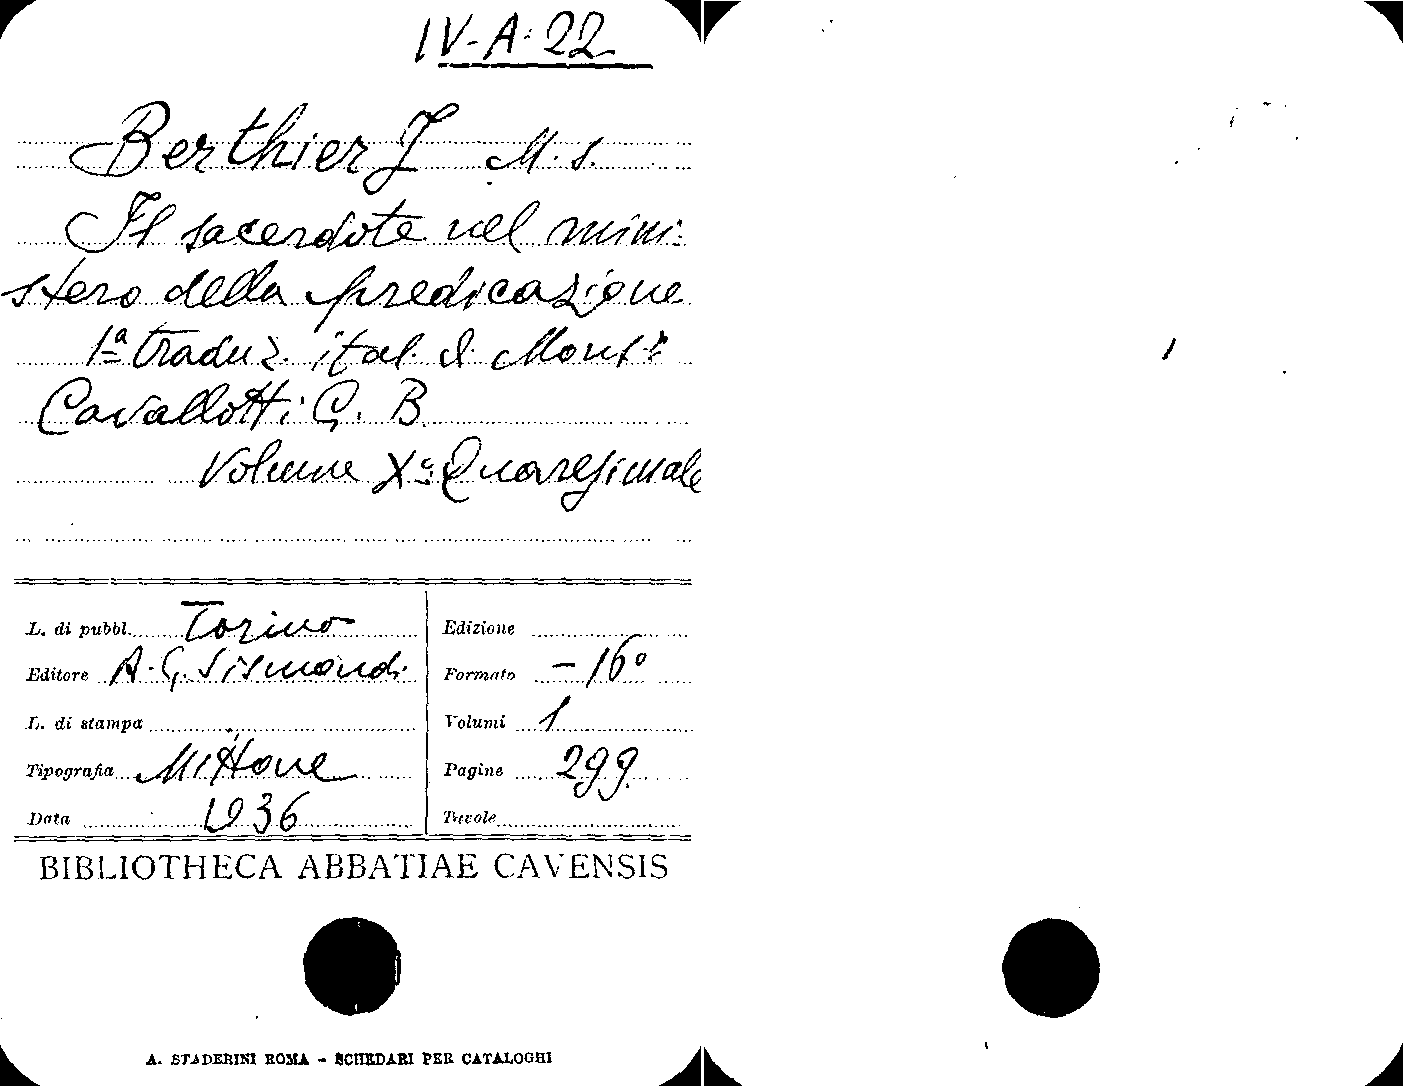 IV-A-22
Berthier J M. S.
Il sacerdote nel mini-
stero della predicazione
1ª traduz. ital. d. Mons.r
Cavallotti G. B.
Volume X° Quaresimale
L. di pubbl. Torino
Editore A. G. Sismondi
L. di stampa
Tipografia Mittone
Data 1936
Edizione
Formato -16°
Volumi 1
Pagine 299
Tavole
BIBLIOTHECA ABBATIAE CAVENSIS
A. STADERINI ROMA - SCHEDARI PER CATALOGHI